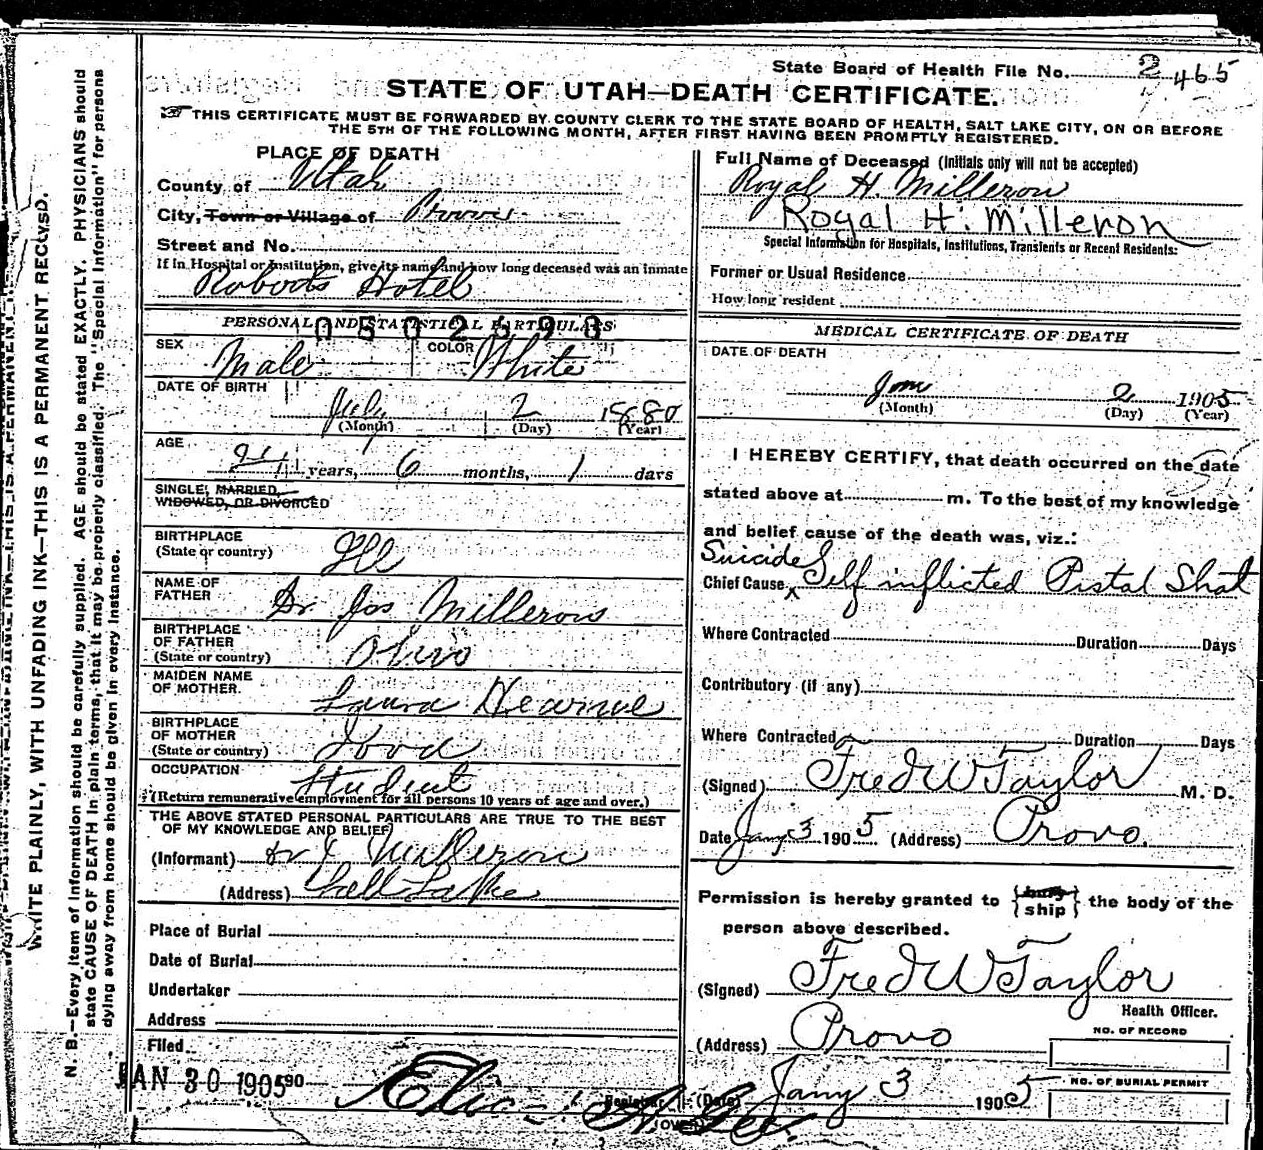 State Board of Health File No. 2465
STATE OF UTAH—DEATH CERTIFICATE.
THIS CERTIFICATE MUST BE FORWARDED BY COUNTY CLERK TO THE STATE BOARD OF HEALTH, SALT LAKE CITY, ON OR BEFORE
THE 5TH OF THE FOLLOWING MONTH, AFTER FIRST HAVING BEEN PROMPTLY REGISTERED.
WRITE PLAINLY, WITH UNFADING INK—THIS IS A PERMANENT RECORD.
N. B.—Every item of information should be carefully supplied. AGE should be stated EXACTLY. PHYSICIANS should
state CAUSE OF DEATH in plain terms, that it may be properly classified. The "Special Information" for persons
dying away from home should be given in every instance.
PLACE OF DEATH
County of Utah
City, Town or Village of Provo
Street and No.
If in Hospital or Institution, give its name and how long deceased was an inmate
Roberts Hotel
PERSONAL AND STATISTICAL PARTICULARS
SEX Male
COLOR White
DATE OF BIRTH
July 2 1880
(Month) (Day) (Year)
AGE
24 years, 6 months, 1 days
SINGLE, MARRIED,
WIDOWED, OR DIVORCED
BIRTHPLACE
(State or country) Ill
NAME OF
FATHER Dr Jos Milleron
BIRTHPLACE
OF FATHER
(State or country) Ohio
MAIDEN NAME
OF MOTHER. Laura
BIRTHPLACE
OF MOTHER
(State or country)
OCCUPATION Student
(Return remunerative employment for all persons 10 years of age and over.)
THE ABOVE STATED PERSONAL PARTICULARS ARE TRUE TO THE BEST
OF MY KNOWLEDGE AND BELIEF
(Informant) Dr J Milleron
(Address)
Place of Burial
Date of Burial
Undertaker
Address
Filed
JAN 30 1905 90
Registrar
(OVER)
Full Name of Deceased (Initials only will not be accepted)
Royal H. Milleron
Royal H. Milleron
Special Information for Hospitals, Institutions, Transients or Recent Residents:
Former or Usual Residence
How long resident
MEDICAL CERTIFICATE OF DEATH
DATE OF DEATH
Jany 2 1905
(Month) (Day) (Year)
I HEREBY CERTIFY, that death occurred on the date
stated above at m. To the best of my knowledge
and belief cause of the death was, viz.:
Suicide
Chief Cause x Self inflicted Pistal Shot
Where Contracted Duration Days
Contributory (if any)
Where Contracted Duration Days
(Signed) Fred W Taylor M. D.
Date Jany 3 1905 (Address) Provo.
Permission is hereby granted to {bury ship} the body of the
person above described.
(Signed) Fred W Taylor
Health Officer.
(Address) Provo
NO. OF RECORD
NO. OF BURIAL PERMIT
(Date) Jany 3 1905